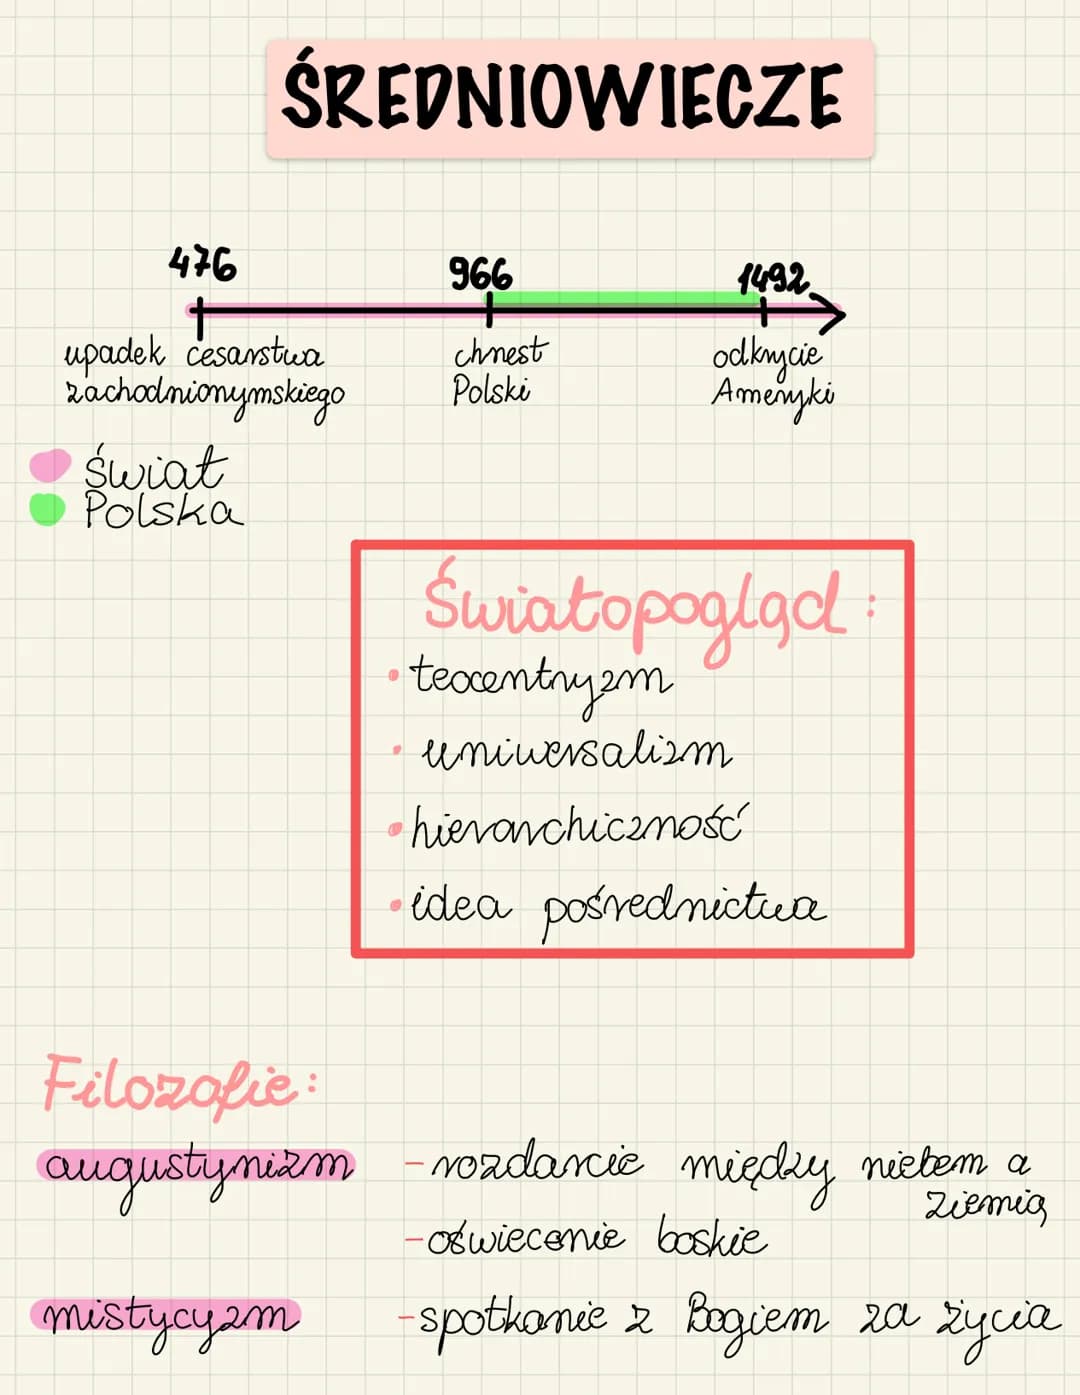 ŚREDNIOWIECZE
476 966 1492
upadek cesarstwa chrzest odkrycie
zachodniorzymskiego Polski Ameryki
Świat
Polska
Światopogląd:
• teocentryzm
• uniwersalizm
• hierarchiczność
• idea pośrednictwa
Filozofie:
augustynizm - rozdarcie między niebem a
ziemią
- oświecenie boskie
mistycyzm - spotkanie z Bogiem za życia